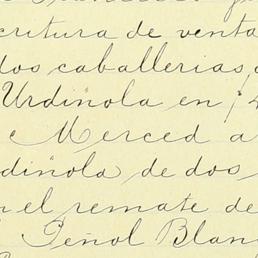 critura de venta
dos caballerias
Urdiñola en
Merced a
diñola de dos
el remate de
Peñol Blan